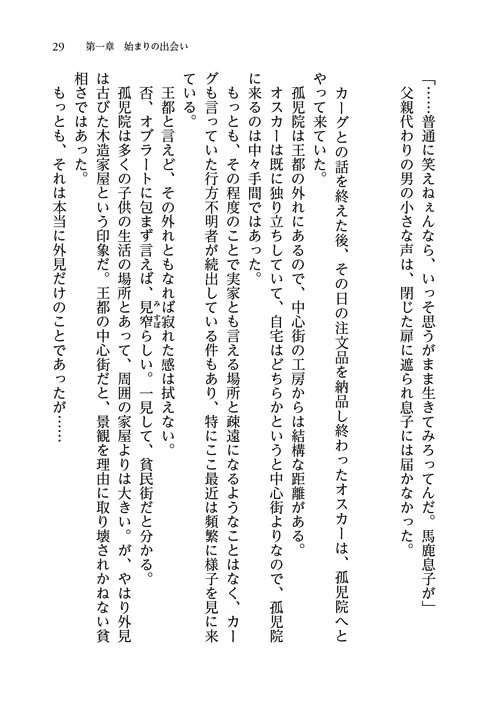 29　第一章　始まりの出会い
「……普通に笑えねぇんなら、いっそ思うがまま生きてみろってんだ。馬鹿息子が」
父親代わりの男の小さな声は、閉じた扉に遮られ息子には届かなかった。
カーグとの話を終えた後、その日の注文品を納品し終わったオスカーは、孤児院へと
やって来ていた。
孤児院は王都の外れにあるので、中心街の工房からは結構な距離がある。
オスカーは既に独り立ちしていて、自宅はどちらかというと中心街よりなので、孤児院
に来るのは中々手間ではあった。
もっとも、その程度のことで実家とも言える場所と疎遠になるようなことはなく、カー
グも言っていた行方不明者が続出している件もあり、特にここ最近は頻繁に様子を見に来
ている。
王都と言えど、その外れともなれば寂れた感は拭えない。
否、オブラートに包まず言えば、見窄らしい。一見して、貧民街だと分かる。
みすぼ
孤児院は多くの子供の生活の場所とあって、周囲の家屋よりは大きい。が、やはり外見
は古びた木造家屋という印象だ。王都の中心街だと、景観を理由に取り壊されかねない貧
相さではあった。
もっとも、それは本当に外見だけのことであったが……